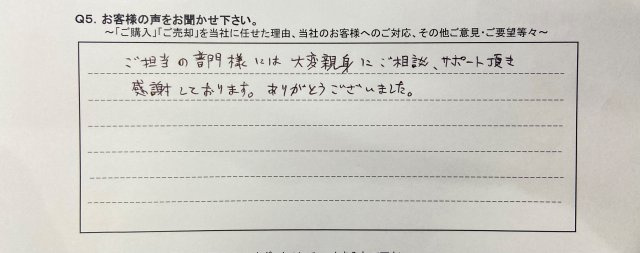 Q5. お客様の声をお聞かせ下さい。
～「ご購入」「ご売却」を当社に任せた理由、当社のお客様へのご対応、その他ご意見・ご要望等々～
ご担当の部門様には大変親身にご相談、サポート頂き
感謝しております。ありがとうございました。